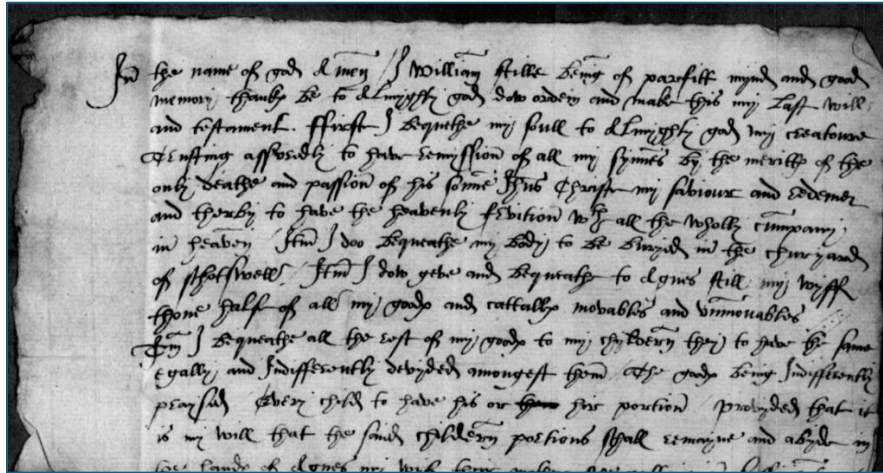 In the name of god Amen / I William Stille being of parfitt mynd and good
memory thankx be to Almighty god dow orden and make this my last will
and testament. ffirst I bequethe my soull to Almighty god my creatoure
Trusting assuredly to have remission of all my synnes by the merittx of the
only deathe and passion of his sonne Jhus Christ my saviour and redemer
and therby to have the heavenly fruition wth all the wholly cumpany
in heaven Itm I doo bequeathe my body to be buryed in the churcyard
of Shotswell / Itm I dow geve and bequeath to Agnes Still my wyff
thone half of all my goodx and cattallx movables and unmovables
Itm I bequeathe all the rest of my goodx to my chyldern they to have the same
egally and Indifferently devyded amongest them The goodx being Indifferently
praysed Every child to have his or hir portion / provyded that it
is my will that the said childern portions shall remayne and abyde in
the handx of Agnes my wif